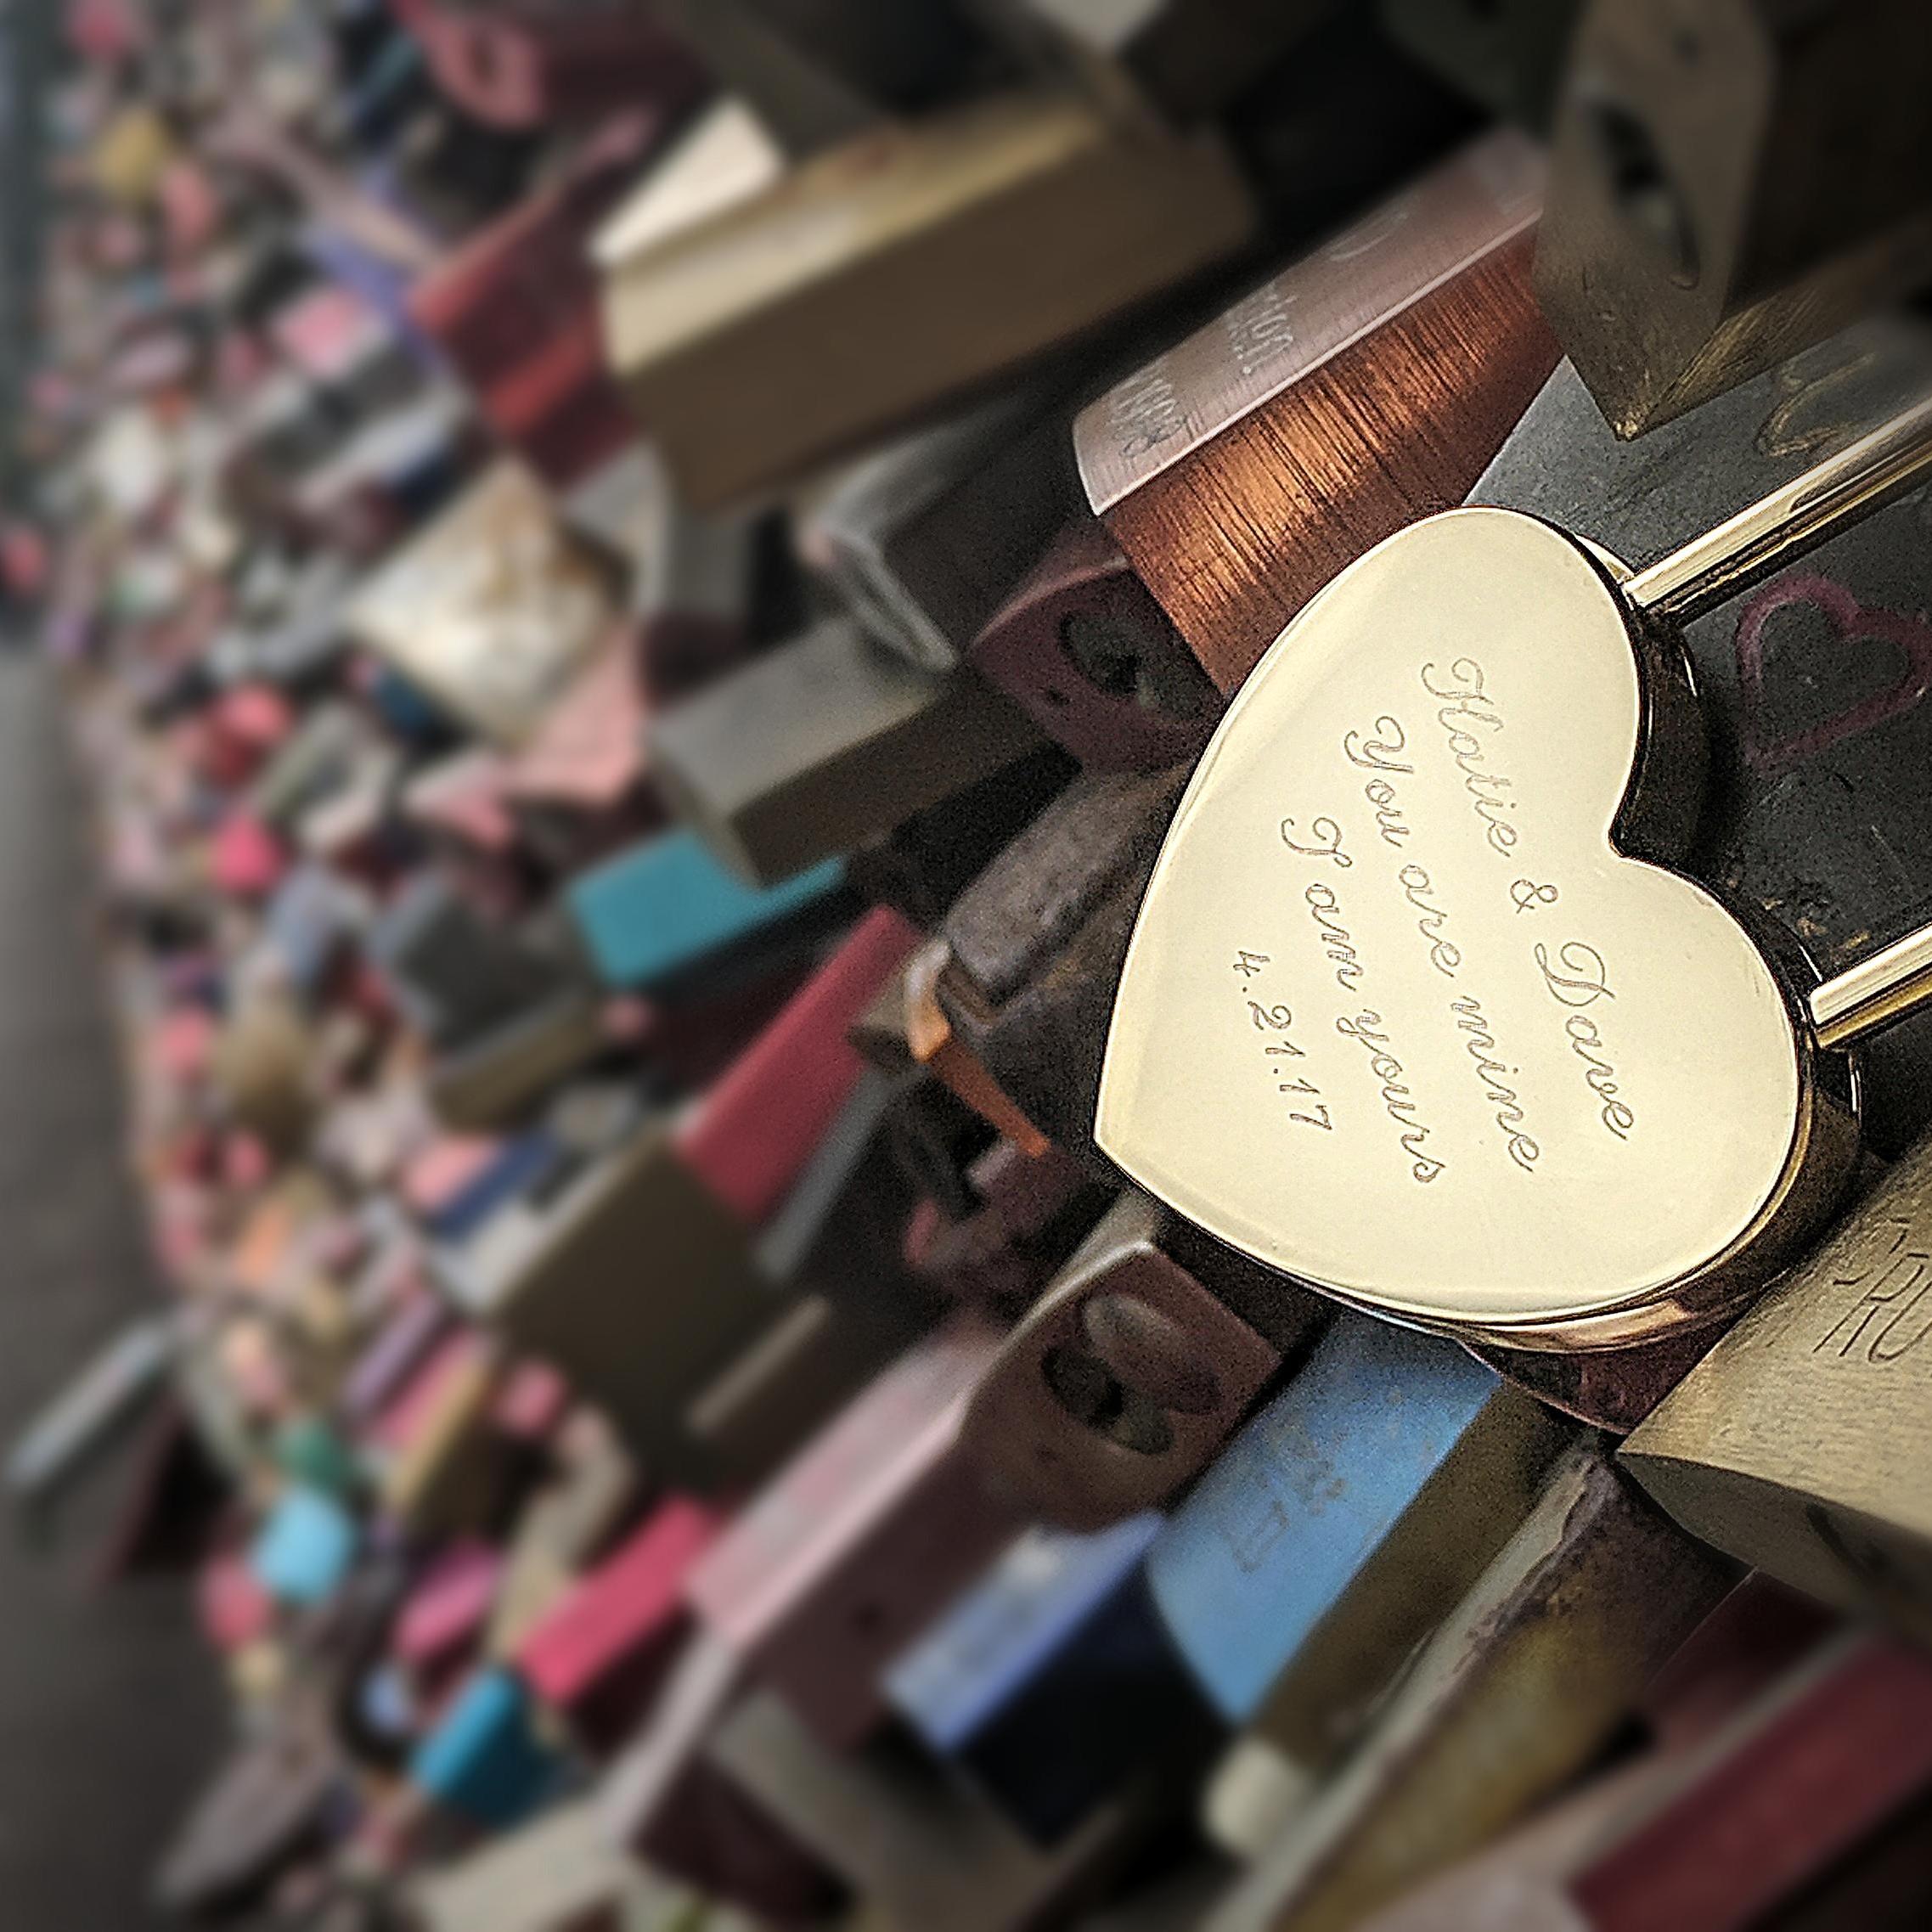 Katie & Dave
You are mine
I am yours
4.21.17